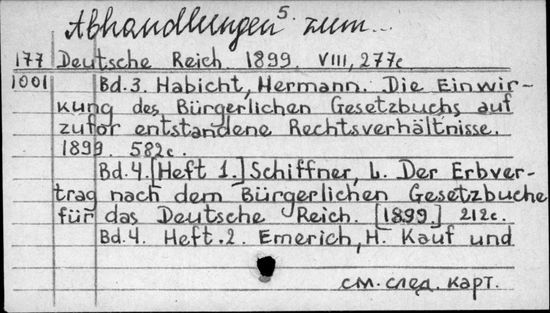 Abhandlungen 5 zum...
177 Deutsche Reich. 1899. VIII, 277c.
1001 Bd.3. Habicht, Hermann. Die Einwir-
kung des Bürgerlichen Gesetzbuchs auf
zufor entstandene Rechtsverhältnisse.
1899. 582c.
Bd.4. [Heft 1.] Schiffner, L. Der Erbver-
trag nach dem Bürgerlichen Gesetzbuche
für das Deutsche Reich. [1899.] 212c.
Bd.4. Heft.2. Emerich, H. Kauf und
см. след. карт.